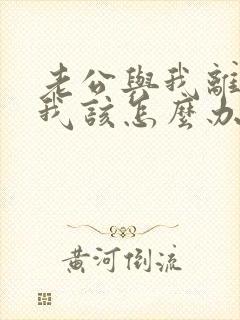 老公與我離
我該怎麼办
黃河倒流